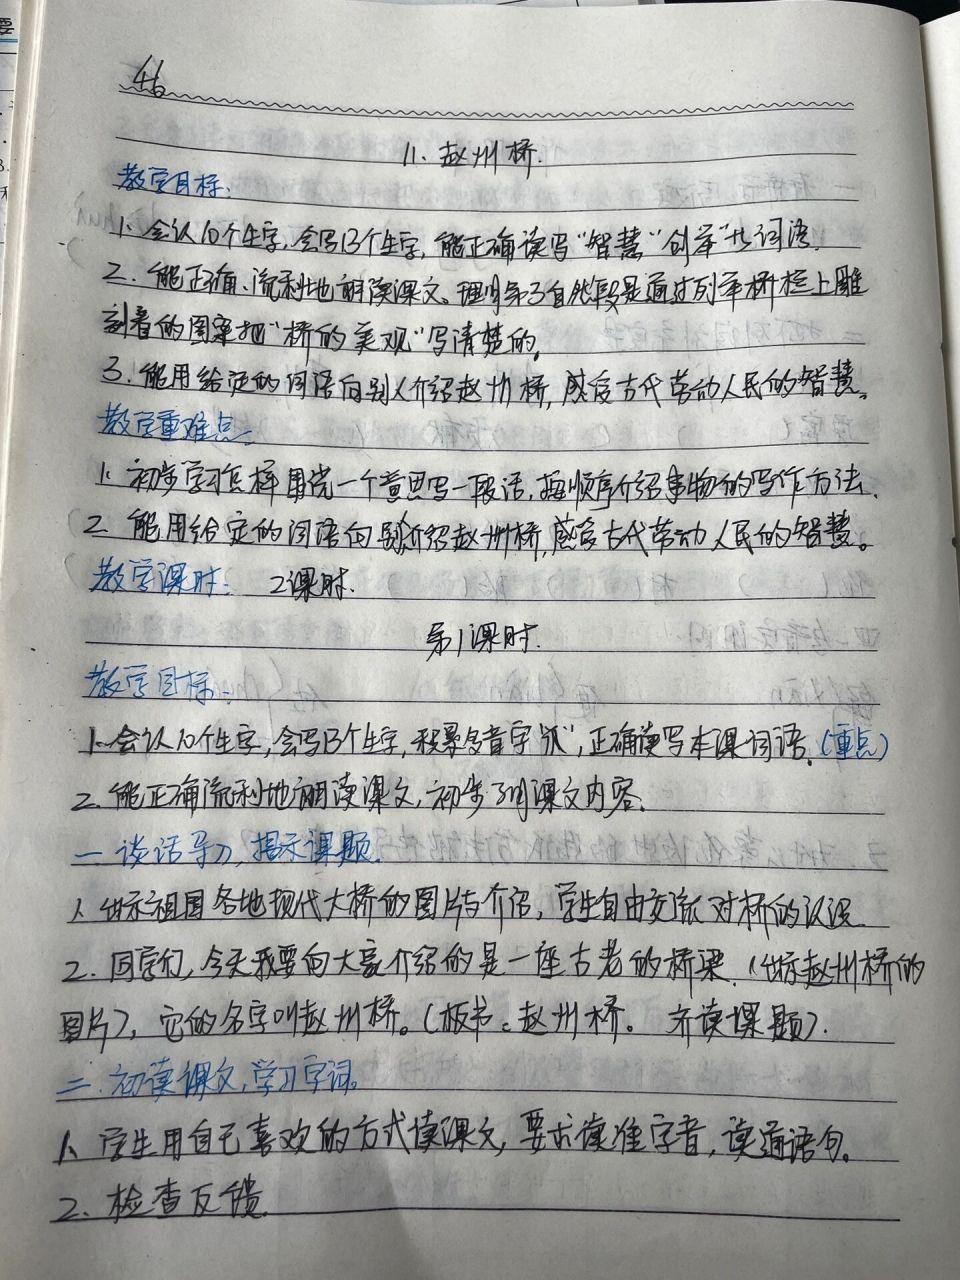 11. 赵州桥.
教学目标:
1. 会认10个生字,会写13个生字,能正确读写"智慧""创举"等词语.
2. 能正确、流利地朗读课文。理解第3自然段是通过列举桥栏上雕
刻着的图案把"桥的美观"写清楚的。
3. 能用给定的词语向别人介绍赵州桥,感受古代劳动人民的智慧。
教学重难点:
1. 初步学习怎样围绕一个意思写一段话,按顺序介绍事物的写作方法.
2. 能用给定的词语向别人介绍赵州桥,感受古代劳动人民的智慧。
教学课时: 2课时.
第1课时.
教学目标:
1. 会认10个生字,会写13个生字,积累多音字"爪",正确读写本课词语。(重点)
2. 能正确流利地朗读课文,初步了解课文内容.
一 谈话导入,揭示课题.
1. 出示祖国各地现代大桥的图片与介绍,学生自由交流对桥的认识.
2. 同学们,今天我要向大家介绍的是一座古老的桥梁.(出示赵州桥的
图片),它的名字叫赵州桥。(板书:赵州桥。齐读课题).
二.初读课文,学习字词。
1. 学生用自己喜欢的方式读课文,要求读准字音,读通语句。
2. 检查反馈.